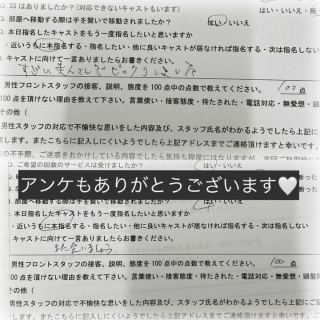 Q. SSはありましたか？（対応できないキャストもいます）
はい・いいえ・断
Q. 部屋へ移動する際は手を繋いで移動されましたか？
はい・いいえ
Q. 本日指名したキャストをもう一度指名したいと思いますか
・近いうちに本指名する・指名したい・他に良いキャストが居なければ指名する・次は指名しない
Q. キャストに向けて一言ありましたらお書きください。
すごい美人さんでビックリしました
男性フロントスタッフの接客、説明、態度を100点中の点数で教えてください。
100点
100点を頂けない理由を教えて下さい。言葉使い・接客態度・待たされた・電話対応・無愛想・頭
その他（
男性スタッフの対応で不愉快な思いをした内容及び、スタッフ氏名がわかるようでしたら上記に
ります。またこちらに記入しにくいようでしたら上記アドレスまでご連絡頂けますと幸いです。
の不手際、ご迷惑をおかけしている内容でしたら気持ち程度にはなりますが、
Q. ご希望の回数のサービスは受けましたか？
アンケもありがとうございます🤍
断った
移動する際は手を繋いで移動されましたか？
Q. 本日指名したキャストをもう一度指名したいと思いますか
・近いうちに本指名する・指名したい・他に良いキャストが居なければ指名する・次は指名しない
キャストに向けて一言ありましたらお書きください
また会いましょう
男性フロントスタッフの接客、説明、態度を100点中の点数で教えてください。
100点
100点を頂けない理由を教えて下さい。言葉使い・接客態度・待たされた・電話対応・無愛想・頭髪
その他（
男性スタッフの対応で不愉快な思いをした内容及び、スタッフ氏名がわかるようでしたら上記にご
ます。またこちらに記入しにくいようでしたら上記アドレスまでご連絡頂けますと幸いです。